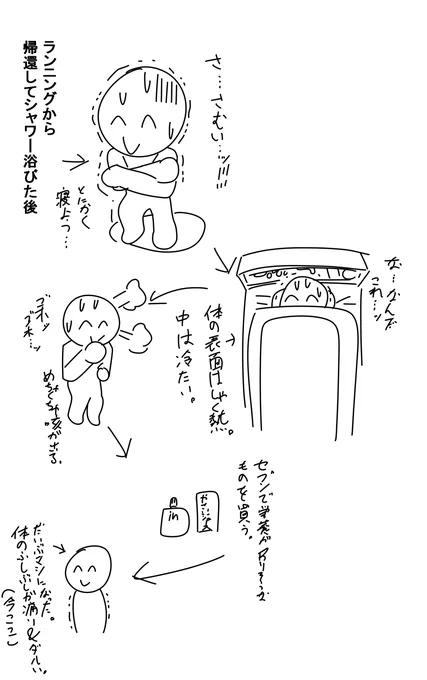 ランニングから
帰還してシャワー浴びた後
さ…さむい…ッ!!!
とにかく
寝よっ…
な…なんだ
これ…ッ
体の表面はしゃく熱。
中は冷たい。
ゴホッ
ゴホ…ッ
めちゃくちゃ咳が出る。
セブンで栄養がありそうな
ものを買う。
in
だいぶマシになった。
体のふしぶしが痛い&ダルい。
(今ここ)